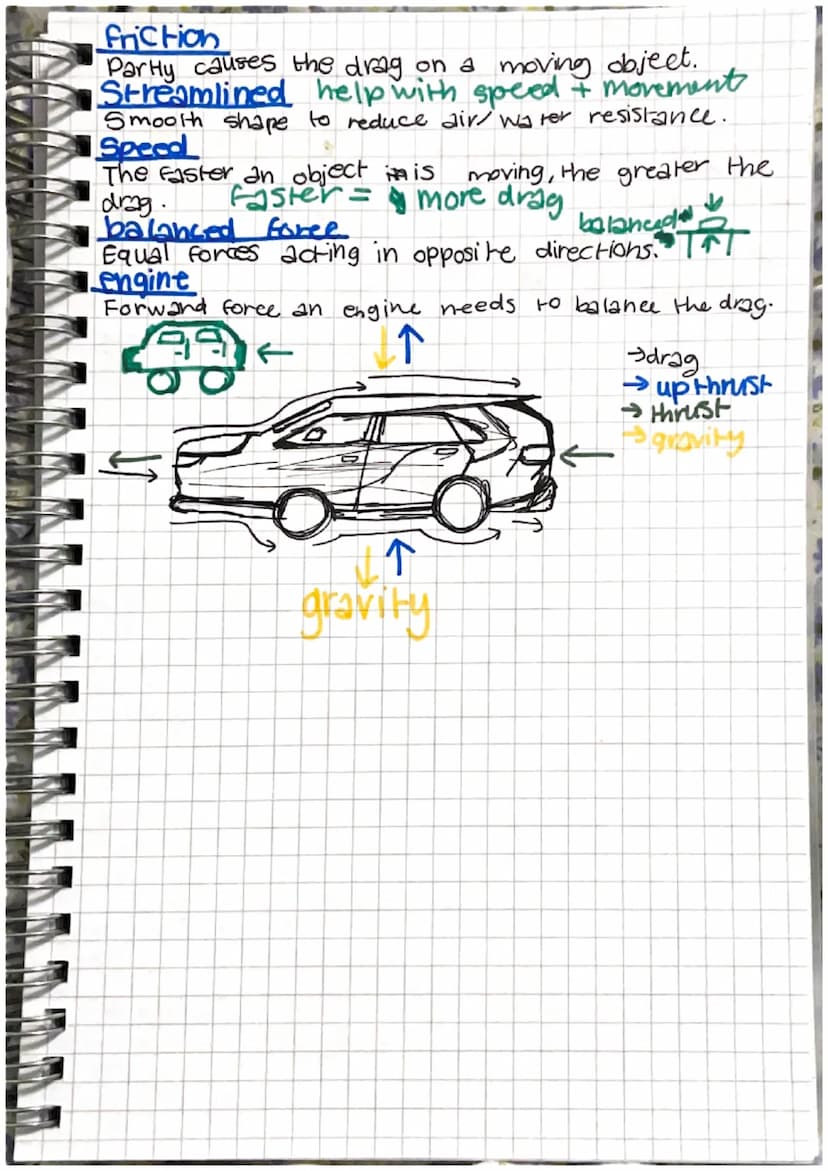 friction
Partly causes the drag on a moving object.
Streamlined help with speed + movement
Smooth shape to reduce air/water resistance.
Speed
The faster an object is moving, the greater the
drag. faster = more drag
balanced force balanced
Equal forces acting in opposite directions.
engine
Forward force an engine needs to balance the drag.
→drag
→ upthrust
→ thrust
→ gravity
gravity